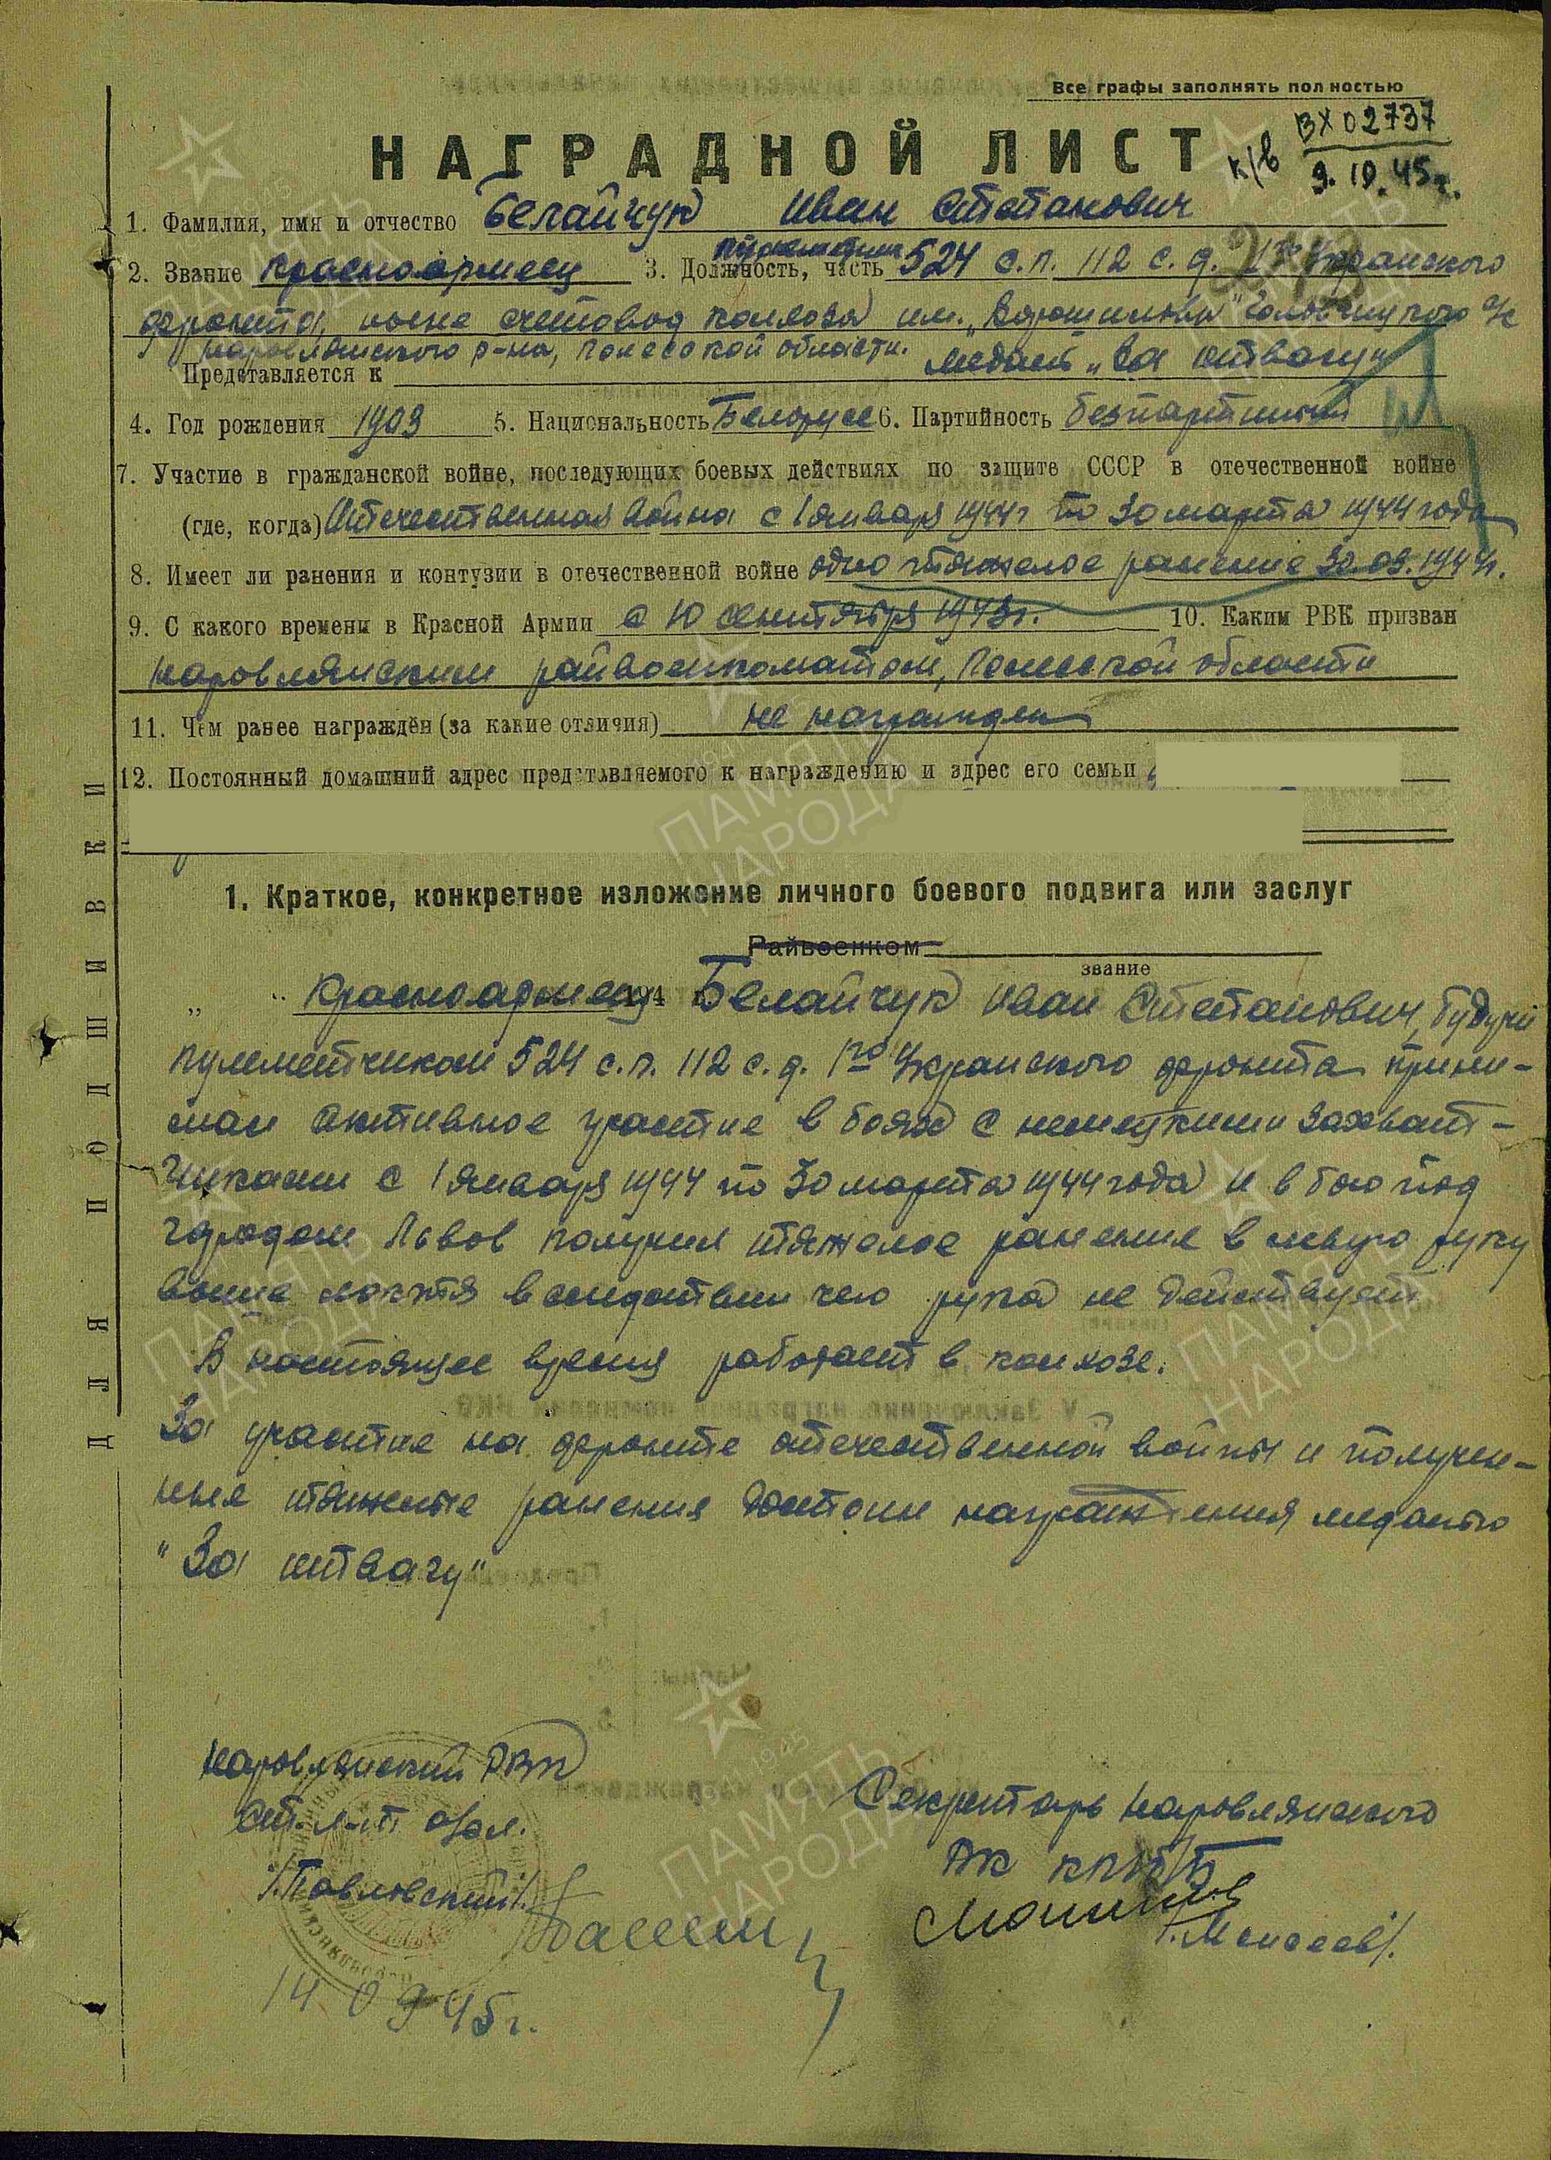 Все графы заполнять полностью
вх 02737
к/в
9.10.45г.
НАГРАДНОЙ ЛИСТ
1. Фамилия, имя и отчество Белайчук Иван Степанович
2. Звание Красноармеец 3. Должность, часть пулеметчик 524 с.п. 112 с.д. 1го Украинского
фронта, ныне счетовод колхоза им. "Ворошилова" Головчицкого с/с
Наровлянского р-на, Полесской области.
Представляется к медали "За отвагу"
4. Год рождения 1903 5. Национальность Белорусс 6. Партийность безпартийный
7. Участие в гражданской войне, последующих боевых действиях по защите СССР в отечественной войне
(где, когда) Отечественная война с 1 января 1944г по 30 марта 1944 года
8. Имеет ли ранения и контузии в отечественной войне одно тяжелое ранение 30.03.1944г.
9. С какого времени в Красной Армии с 10 сентября 1943г. 10. Каким РВК призван
Наровлянским райвоенкоматом, Полесской области
11. Чем ранее награждён (за какие отличия) не награжден
12. Постоянный домашний адрес представляемого к награждению и адрес его семьи
ДЛЯ ПОДШИВКИ
1. Краткое, конкретное изложение личного боевого подвига или заслуг
Райвоенком
звание
" " Красноармеец 194 г. Белайчук Иван Степанович, будучи
пулеметчиком 524 с.п. 112 с.д. 1го Украинского фронта прини-
мал активное участие в боях с немецкими захват-
чиками с 1 января 1944 по 30 марта 1944 года и в бою под
городом Львов получил тяжелое ранение в левую руку
выше локтя вследствии чего рука не действует
В настоящее время работает в колхозе.
За участие на фронте отечественной войны и получен-
ные тяжелые ранения достоин награждения медалью
"За отвагу"
Наровлянский РВК
ст. л-т адм.
/Павловский/
14 09 45г.
Секретарь Наровлянского
РК КП(б)Б
/Моисеев/.
ПАМЯТЬ НАРОДА
1945